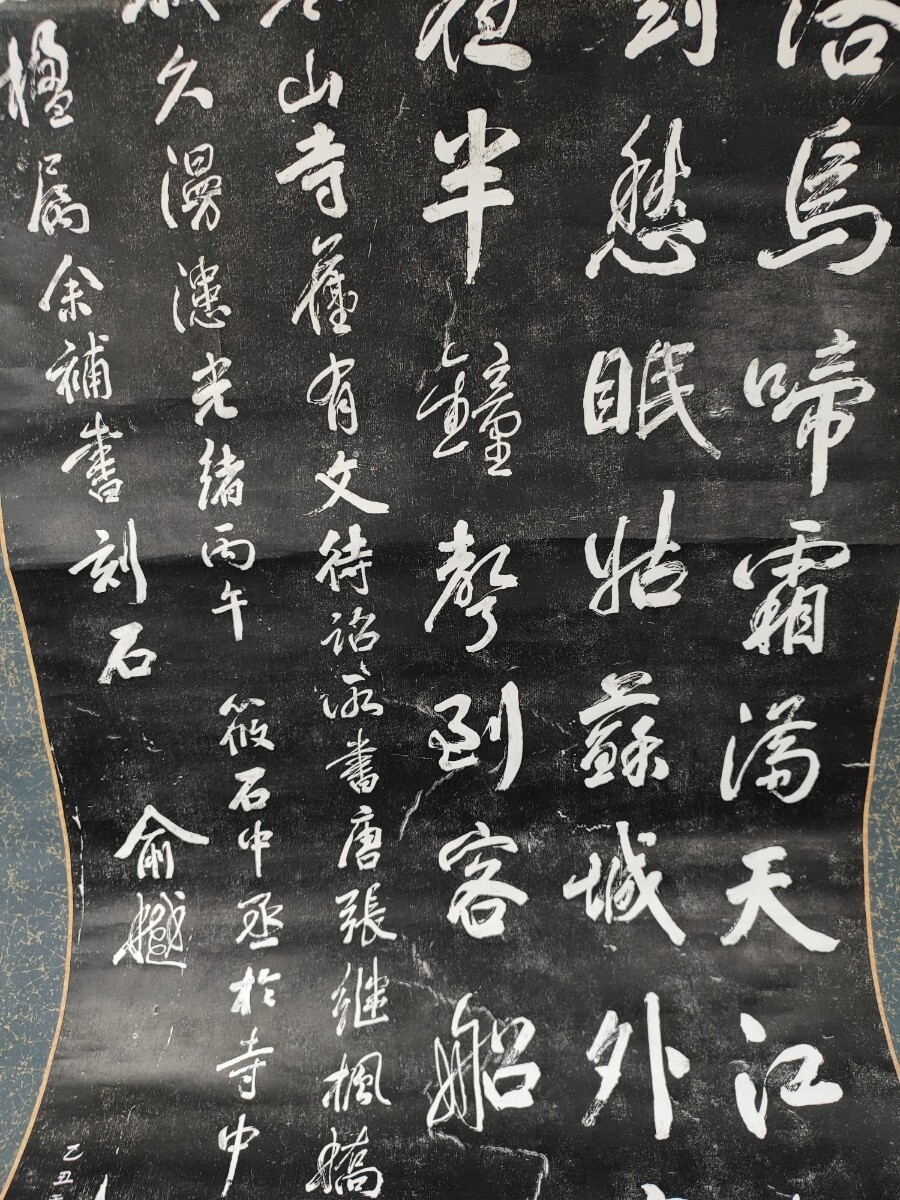 落烏啼霜滿天江
到愁眠姑蘇城外
夜半鐘聲到客船
寒山寺舊有文待詔所書唐張繼楓橋
久漫漶光緒丙午筱石中丞於寺中
楹屬余補書刻石
俞樾
乙丑